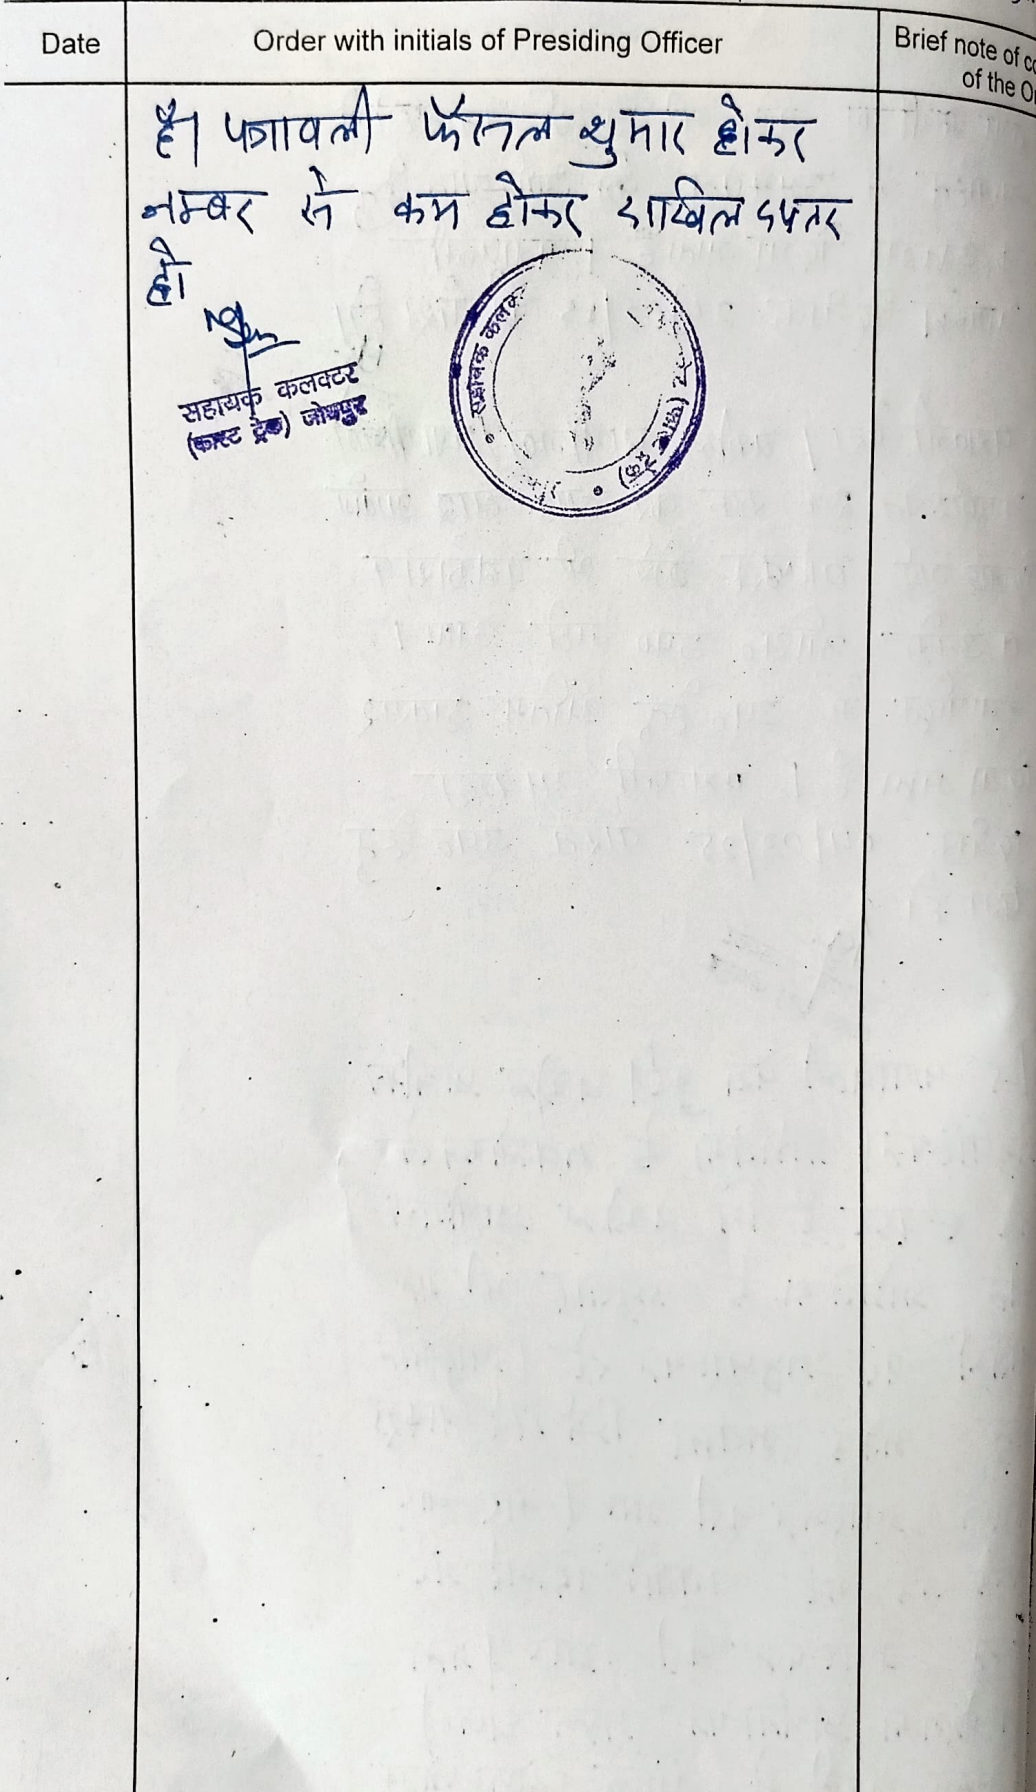 Date
Order with initials of Presiding Officer
Brief note of
of the
है। पत्रावली फैसल शुमार होकर
नम्बर से कम होकर दाखिल दफ्तर
हो
सहायक कलक्टर
(फास्ट ट्रेक) जोधपुर
सहायक कलक्टर (फास्ट ट्रेक)